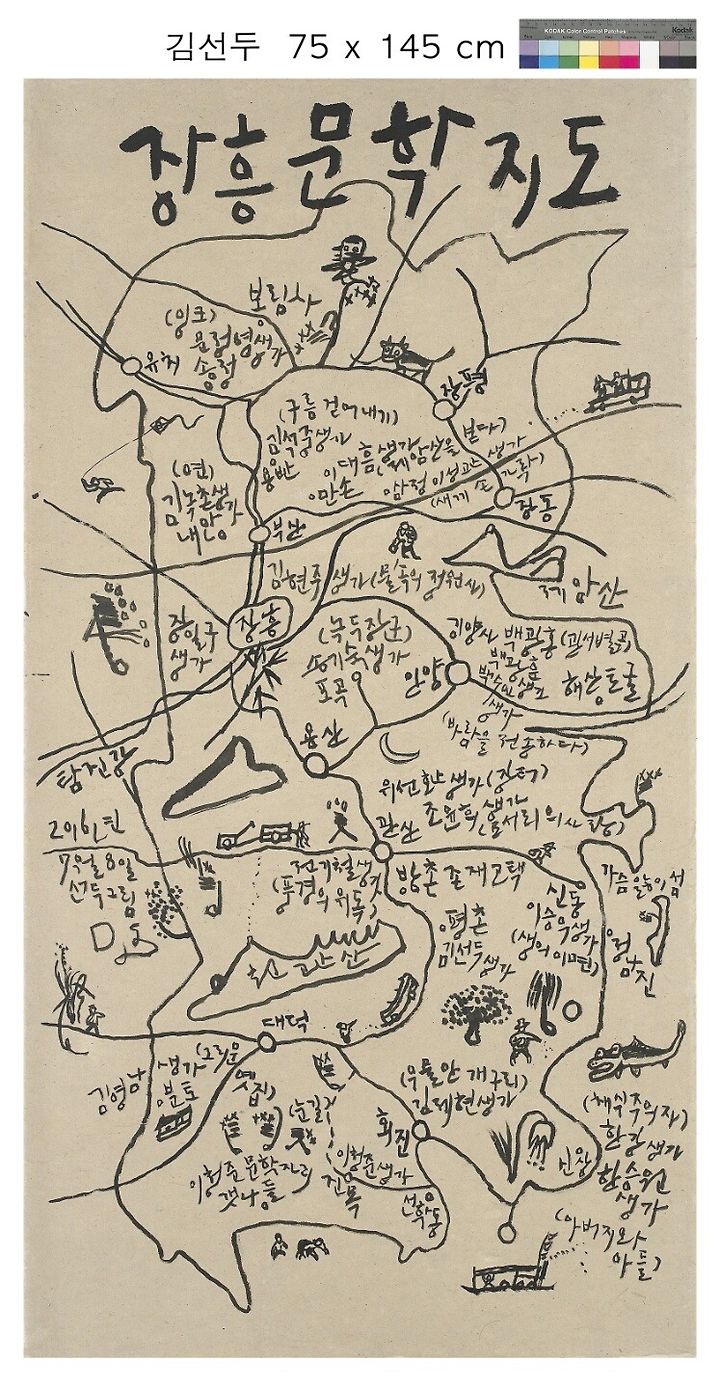 김선두 75 x 145 cm
KODAK Color Control Patches
Kodak
장흥문학지도
보림사
(잉크)
문정영생가
송정
유치
장평
(구름 걷어내기)
김석중생가
용반
이대흠생가
만손
제암산을 본다)
이성관 생가
(연)
김녹촌생가
내안
부산
장동
김현주생가
제암산
장흥
장일구
생가
(녹두장군)
송기숙생가
포곡
안양
기양사 백광홍(관서별곡)
백광훈
해산토굴
생가
(바람을 전송하다)
용산
탐진강
위선환생가(장터)
조윤희생가
관산
2016년
7월 8일
선두그림
전기철생가
(풍경의 위독)
방촌 존재고택
신동
이승우생가
(생의 이면)
정남진
평촌
김선두생가
천관산
대덕
김영남 생가
분토
(그리운
옛집)
(눈길)
(우물안 개구리)
김제현생가
회진
이청준문학자리
갯나들
이청준생가
진목
선학동
신상
(채식주의자)
한강생가
한승원
생가
(아버지와
아들)